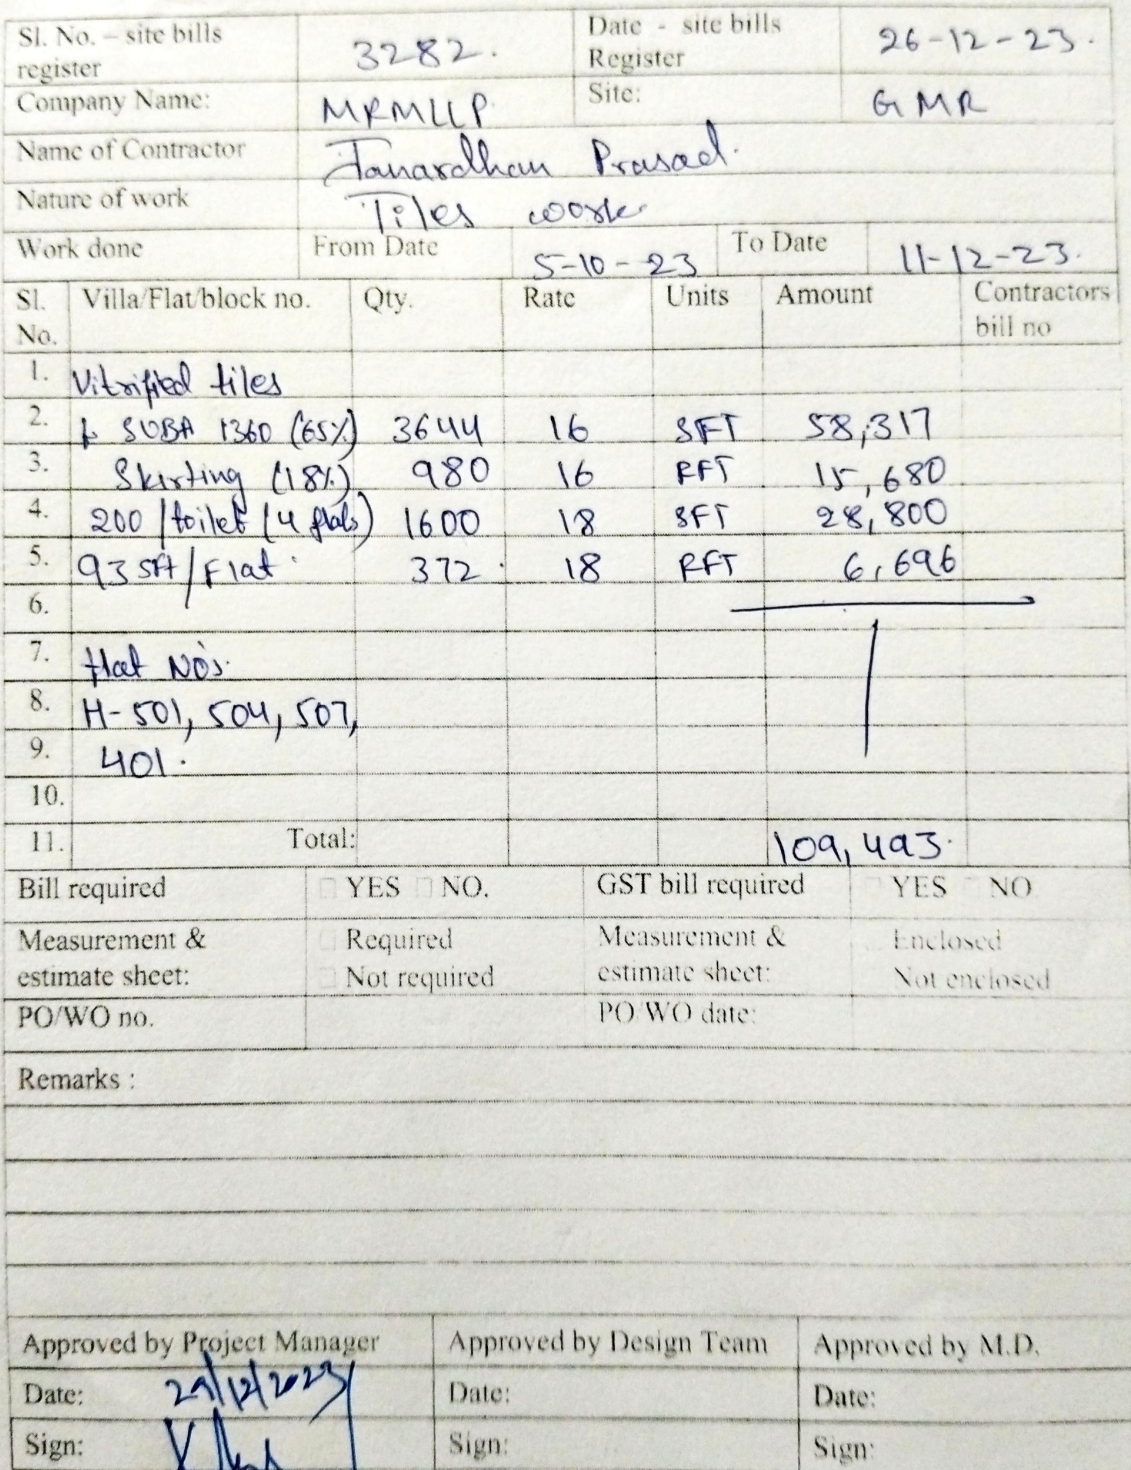 Sl. No. – site bills register 3282. Date - site bills Register 26-12-23.
Company Name: MRMLLP Site: GMR
Name of Contractor Janardhan Prasad.
Nature of work Tiles work
Work done From Date 5-10-23 To Date 11-12-23.
Sl. No. Villa/Flat/block no. Qty. Rate Units Amount Contractors bill no
1. Vitrified tiles
2. SUBA 1360 (65%) 3644 16 SFT 58,317
3. Skirting (18%) 980 16 RFT 15,680
4. 200/toilet (4 flats) 1600 18 SFT 28,800
5. 93 Sft/Flat 372 18 RFT 6,696
6.
7. flat No's.
8. H-501, 504, 507,
9. 401.
10.
11. Total: 109,493.
Bill required YES NO. GST bill required YES NO
Measurement & estimate sheet: Required Not required Measurement & estimate sheet: Enclosed Not enclosed
PO/WO no. PO/WO date:
Remarks :
Approved by Project Manager Approved by Design Team Approved by M.D.
Date: 29/12/2023 Date: Date:
Sign: Sign: Sign: